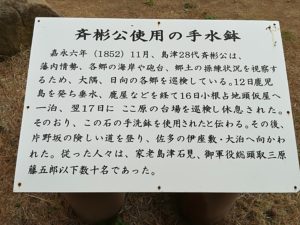 斉彬公使用の手水鉢
嘉永六年（1852）11月、島津28代斉彬公は、
藩内情勢、各郷の海岸や砲台、郷土の操練状況を視察す
るため、大隅、日向の各郷を巡検している。12日鹿児
島を発ち垂水、鹿屋などを経て16日小根占地頭仮屋へ
一泊、翌17日に ここ原の台場を巡検し休息された。
そのおり、この石の手洗鉢を使用されたと伝わる。その後、
片野坂の険しい道を登り、佐多の伊座敷・大泊へ向かわ
れた。従った人々は、家老島津石見、御軍役総頭取三原
藤五郎以下数十名であった。